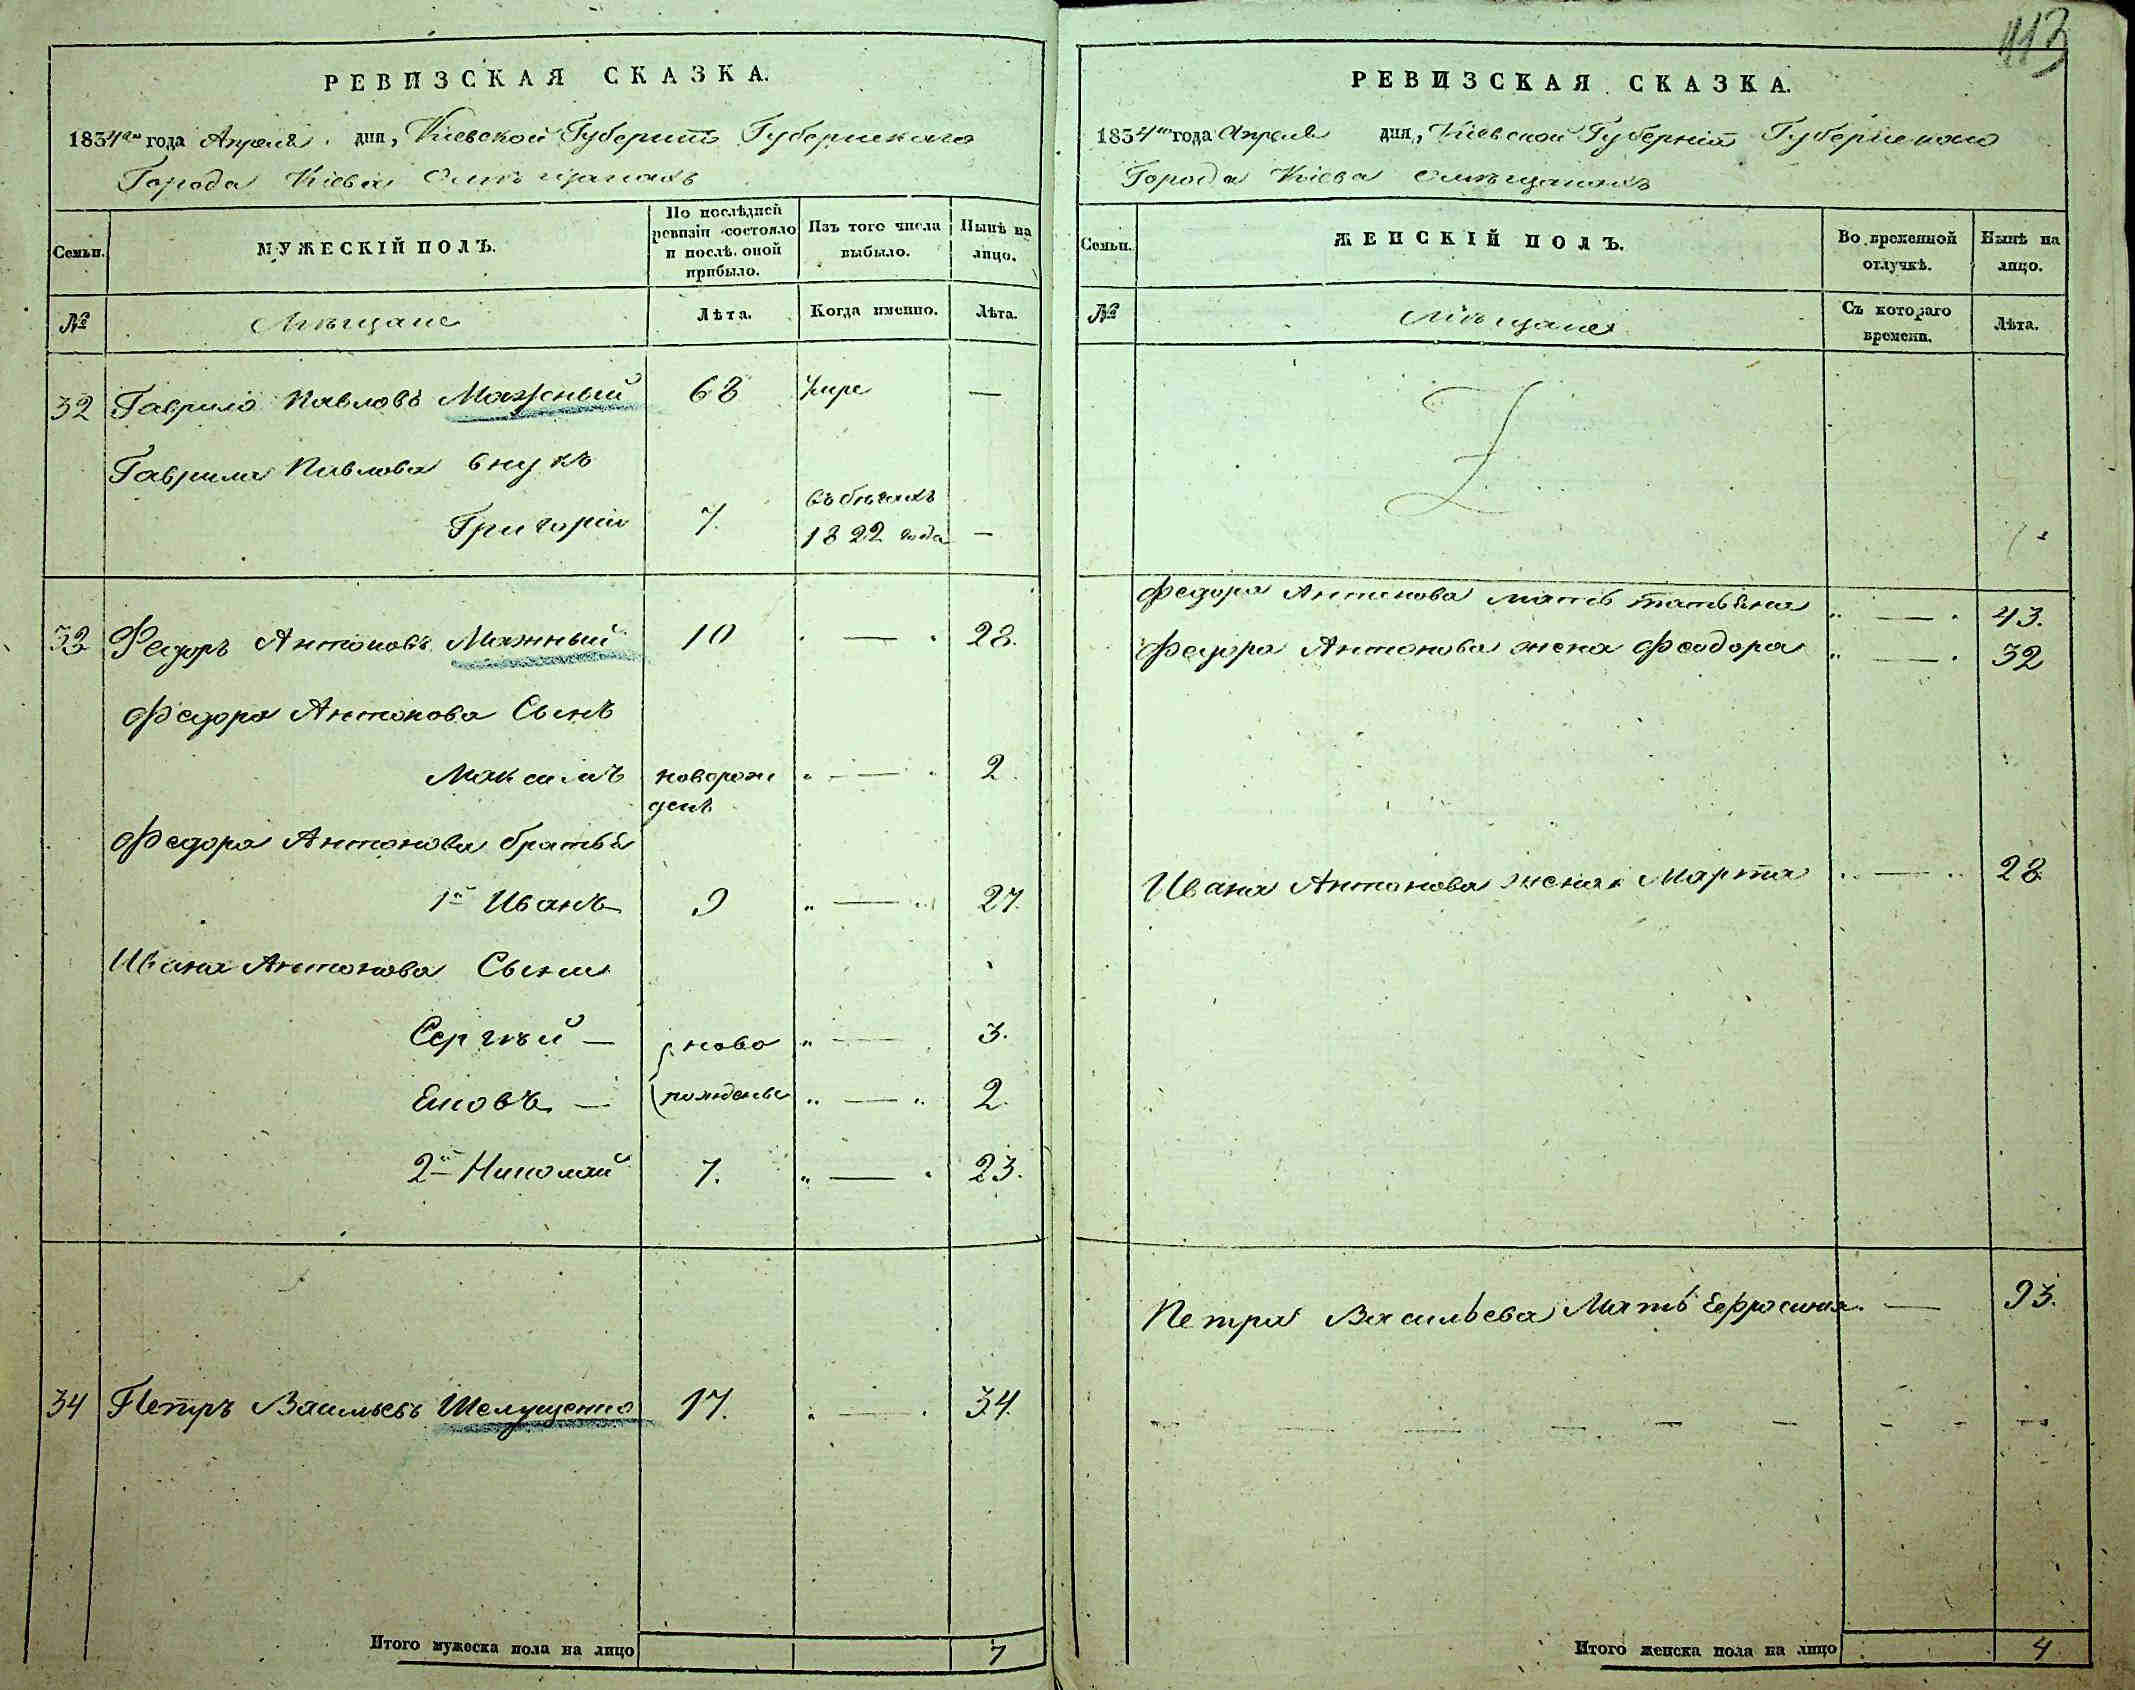 РЕВИЗСКАЯ СКАЗКА.
1834го года Апреля дня, Киевской Губернiи Губернскаго
Города Кiева О мѣщанахъ
Семьи.
МУЖЕСКIЙ ПОЛЪ.
По послѣдней ревизiи состояло и послѣ оной прибыло.
Изъ того числа выбыло.
Нынѣ на лицо.
№
Мѣщане
Лѣта.
Когда именно.
Лѣта.
32 Гаврило Павловъ Мажный 68 умре —
Гаврила Павлова внукъ
Григорiй 7. въ бѣгахъ 1822 года —
33 Федоръ Антоновъ Мажный 10 — 28.
Федора Антонова Сынъ
Максимъ новорожденъ " — " 2.
Федора Антонова братья
1й Иванъ 9 " — " 27.
Ивана Антонова Сыны
Сергѣй — ново " — 3.
Еховъ — рожденые " — " 2.
2й Николай 7. " — " 23.
34 Петръ Васильевъ Шелущенко 17. " — 34.
Итого мужеска пола на лицо 7
113
РЕВИЗСКАЯ СКАЗКА.
1834го года Апреля дня, Кiевской Губернiи Губернскаго
Города Кiева О мѣщанахъ
Семьи.
ЖЕНСКIЙ ПОЛЪ.
Во временной отлучкѣ.
Нынѣ на лицо.
№
Мѣщане
Съ котораго времени.
Лѣта.
Федора Антонова мать татьяна " — " 43.
Федора Антонова жена Феодора " — " 32
Ивана Антонова жена Марта " — " 28.
Петра Васильева Мать Ефросинiя — 93.
Итого женска пола на лицо 4